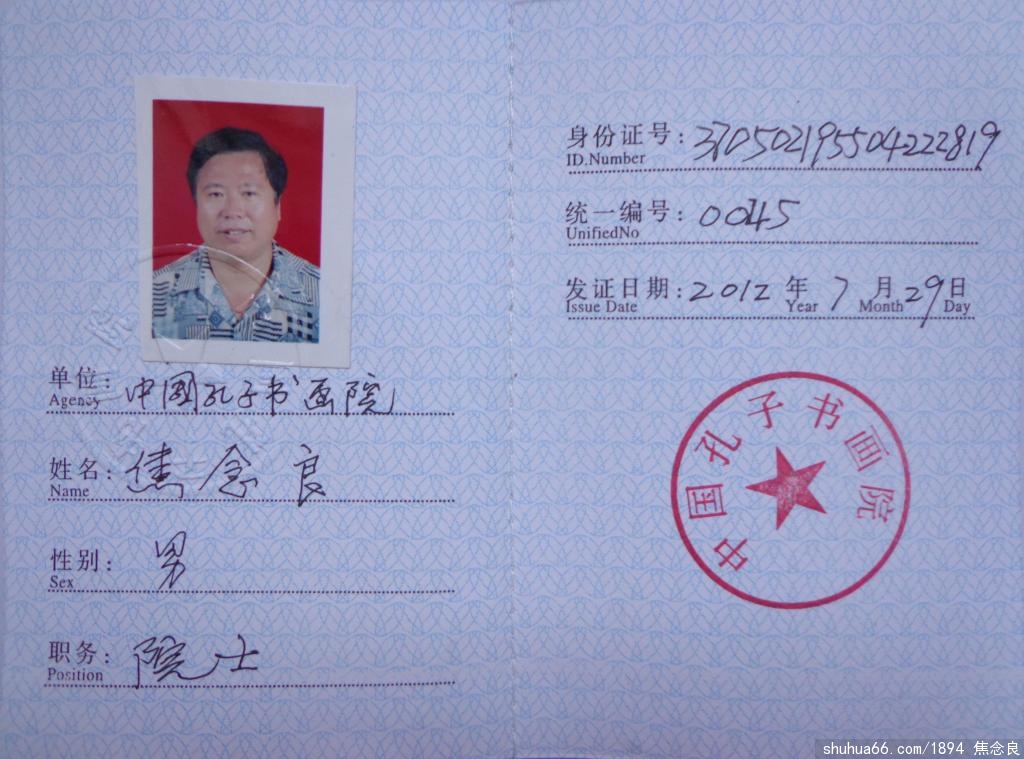 单位：中國孔子书画院
Agency
姓名：焦念良
Name
性别：男
Sex
职务：院士
Position
身份证号：370502195504222819
ID.Number
统一编号：0045
UnifiedNo
发证日期：2012年7月29日
Issue Date Year Month Day
中国孔子书画院
shuhua66.com/1894 焦念良